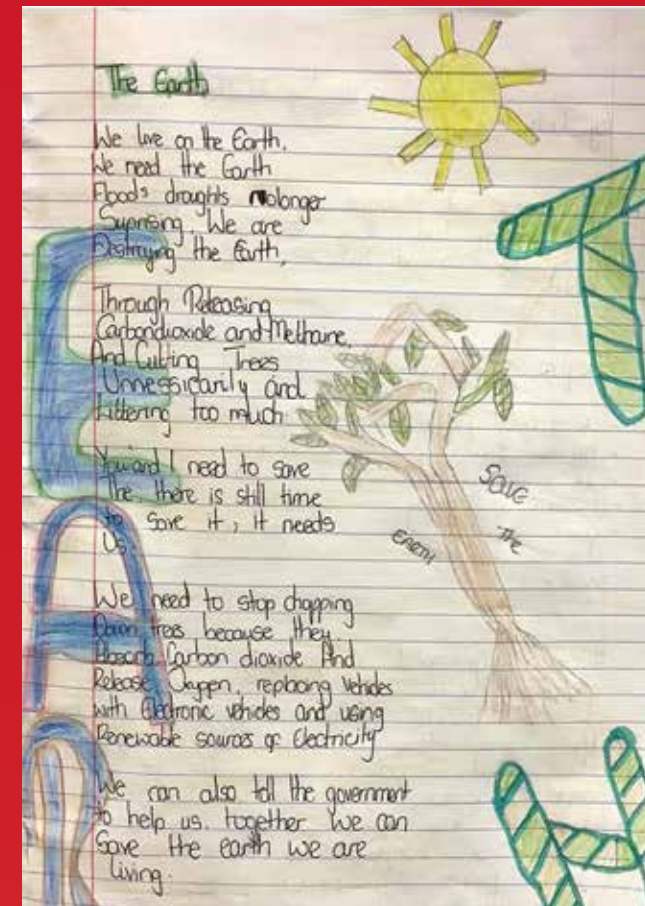 The Earth
We live on the Earth.
We need the Earth
Floods draughts nolonger
Suprising. We are
Destroying the Earth,
Through Releasing
Carbondioxide and Methane.
And Cutting Trees
Unnessicarily and
Littering too much
You and I need to save
The there is still time
to save it, it needs
Us.
We need to stop chopping
Down trees because they
Absorb Carbon dioxide And
Release Oxygen, replacing vehicles
with Electronic vehicles and using
Renewable sources of Electricity
We can also tell the government
to help us. together we can
Save the earth we are
living.
SAVE
THE
EARTH
E
A
R
T
H